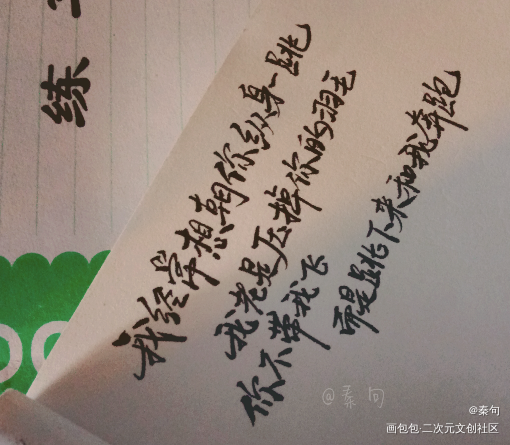 练
我经常想朝你纵身一跳
我老是压掉你的羽毛
你不带我飞
而是跳下来和我奔跑
@秦句
@秦句
画包包·二次元文创社区